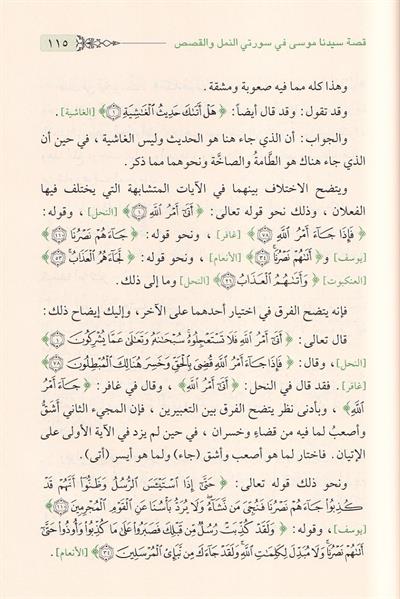 قصة سيدنا موسى في سورتي النمل والقصص ١١٥
وهذا كله مما فيه صعوبة ومشقة .
وقد تقول : وقد قال أيضاً : ﴿ هَلْ أَتَىٰكَ حَدِيثُ ٱلْغَٰشِيَةِ ۝١ ﴾ [الغاشية] .
والجواب : أن الذي جاء هنا هو الحديث وليس الغاشية ، في حين أن
الذي جاء هناك هو الطَّامةُ والصاخَّة ونحوهما مما ذكر .
ويتضح الاختلاف بينهما في الآيات المتشابهة التي يختلف فيها
الفعلان ، وذلك نحو قوله تعالى : ﴿ أَتَىٰٓ أَمْرُ ٱللَّهِ ۝١ ﴾ [النحل] ، وقوله :
﴿ فَإِذَا جَآءَ أَمْرُ ٱللَّهِ ۝٧٨ ﴾ [غافر] ، ونحو قوله : ﴿ جَآءَهُمْ نَصْرُنَا ۝١١٠ ﴾
[يوسف] و ﴿ أَتَىٰهُمْ نَصْرُنَا ۝٣٤ ﴾ [الأنعام] ، ونحو قوله : ﴿ لَّجَآءَهُمُ ٱلْعَذَابُ ۝٥٣ ﴾
[العنكبوت] ﴿ وَأَتَىٰهُمُ ٱلْعَذَابُ ۝٢٦ ﴾ [النحل] وما إلى ذلك .
فإنه يتضح الفرق في اختيار أحدهما على الآخر ، وإليك إيضاح ذلك :
قال تعالى : ﴿ أَتَىٰٓ أَمْرُ ٱللَّهِ فَلَا تَسْتَعْجِلُوهُ سُبْحَٰنَهُۥ وَتَعَٰلَىٰ عَمَّا يُشْرِكُونَ ۝١ ﴾
[النحل] ، وقال : ﴿ فَإِذَا جَآءَ أَمْرُ ٱللَّهِ قُضِىَ بِٱلْحَقِّ وَخَسِرَ هُنَالِكَ ٱلْمُبْطِلُونَ ۝٧٨ ﴾
[غافر] . فقد قال في النحل : ﴿ أَتَىٰٓ أَمْرُ ٱللَّهِ ﴾ ، وقال في غافر : ﴿ جَآءَ أَمْرُ
ٱللَّهِ ﴾ ، وبأدنى نظر يتضح الفرق بين التعبيرين ، فإن المجيء الثاني أَشقُّ
وأصعبُ لما فيه من قضاءٍ وخسران ، في حين لم يزد في الآية الأولى على
الإتيان . فاختار لما هو أصعب وأشق (جاء) ولما هو أيسر (أتى) .
ونحو ذلك قوله تعالى : ﴿ حَتَّىٰٓ إِذَا ٱسْتَيْـَٔسَ ٱلرُّسُلُ وَظَنُّوٓا۟ أَنَّهُمْ قَدْ
كُذِبُوا۟ جَآءَهُمْ نَصْرُنَا فَنُجِّىَ مَن نَّشَآءُ وَلَا يُرَدُّ بَأْسُنَا عَنِ ٱلْقَوْمِ ٱلْمُجْرِمِينَ ۝١١٠ ﴾
[يوسف] ، وقوله : ﴿ وَلَقَدْ كُذِّبَتْ رُسُلٌ مِّن قَبْلِكَ فَصَبَرُوا۟ عَلَىٰ مَا كُذِّبُوا۟ وَأُوذُوا۟ حَتَّىٰٓ
أَتَىٰهُمْ نَصْرُنَا وَلَا مُبَدِّلَ لِكَلِمَٰتِ ٱللَّهِ وَلَقَدْ جَآءَكَ مِن نَّبَإِى۟ ٱلْمُرْسَلِينَ ۝٣٤ ﴾ [الأنعام] .